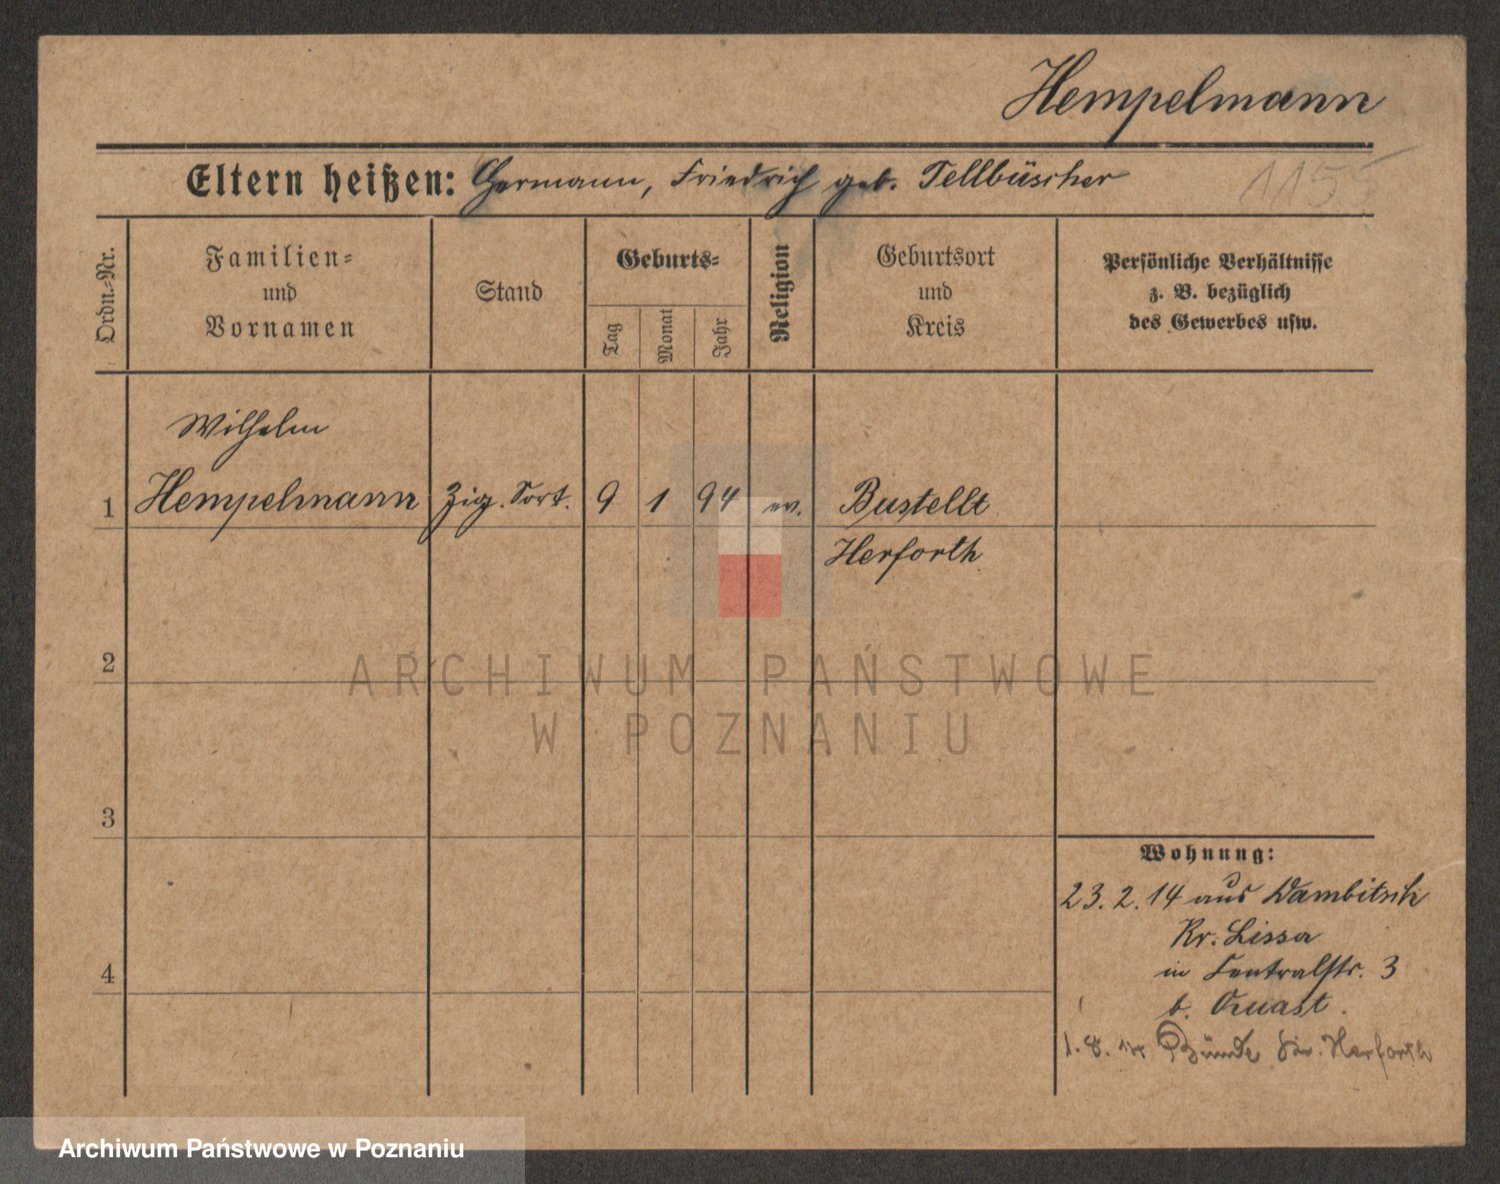 Hempelmann
Eltern heißen: Hermann, Friedrich geb. Tellbüscher
1155
Ordn.-Nr.
Familien-
und
Vornamen
Stand
Geburts-
Tag
Monat
Jahr
Religion
Geburtsort
und
Kreis
Persönliche Verhältnisse
z. B. bezüglich
des Gewerbes usw.
Wilhelm
1 Hempelmann Zig. Sort. 9 1 94 ev. Bustellt
Herforth
2
3
4
Wohnung:
23. 2. 14 aus Dambitsch
Kr. Lissa
in Centralstr. 3
b. Quast.
1. 8. Bünde Kr. Herforth
ARCHIWUM PAŃSTWOWE
W POZNANIU
Archiwum Państwowe w Poznaniu